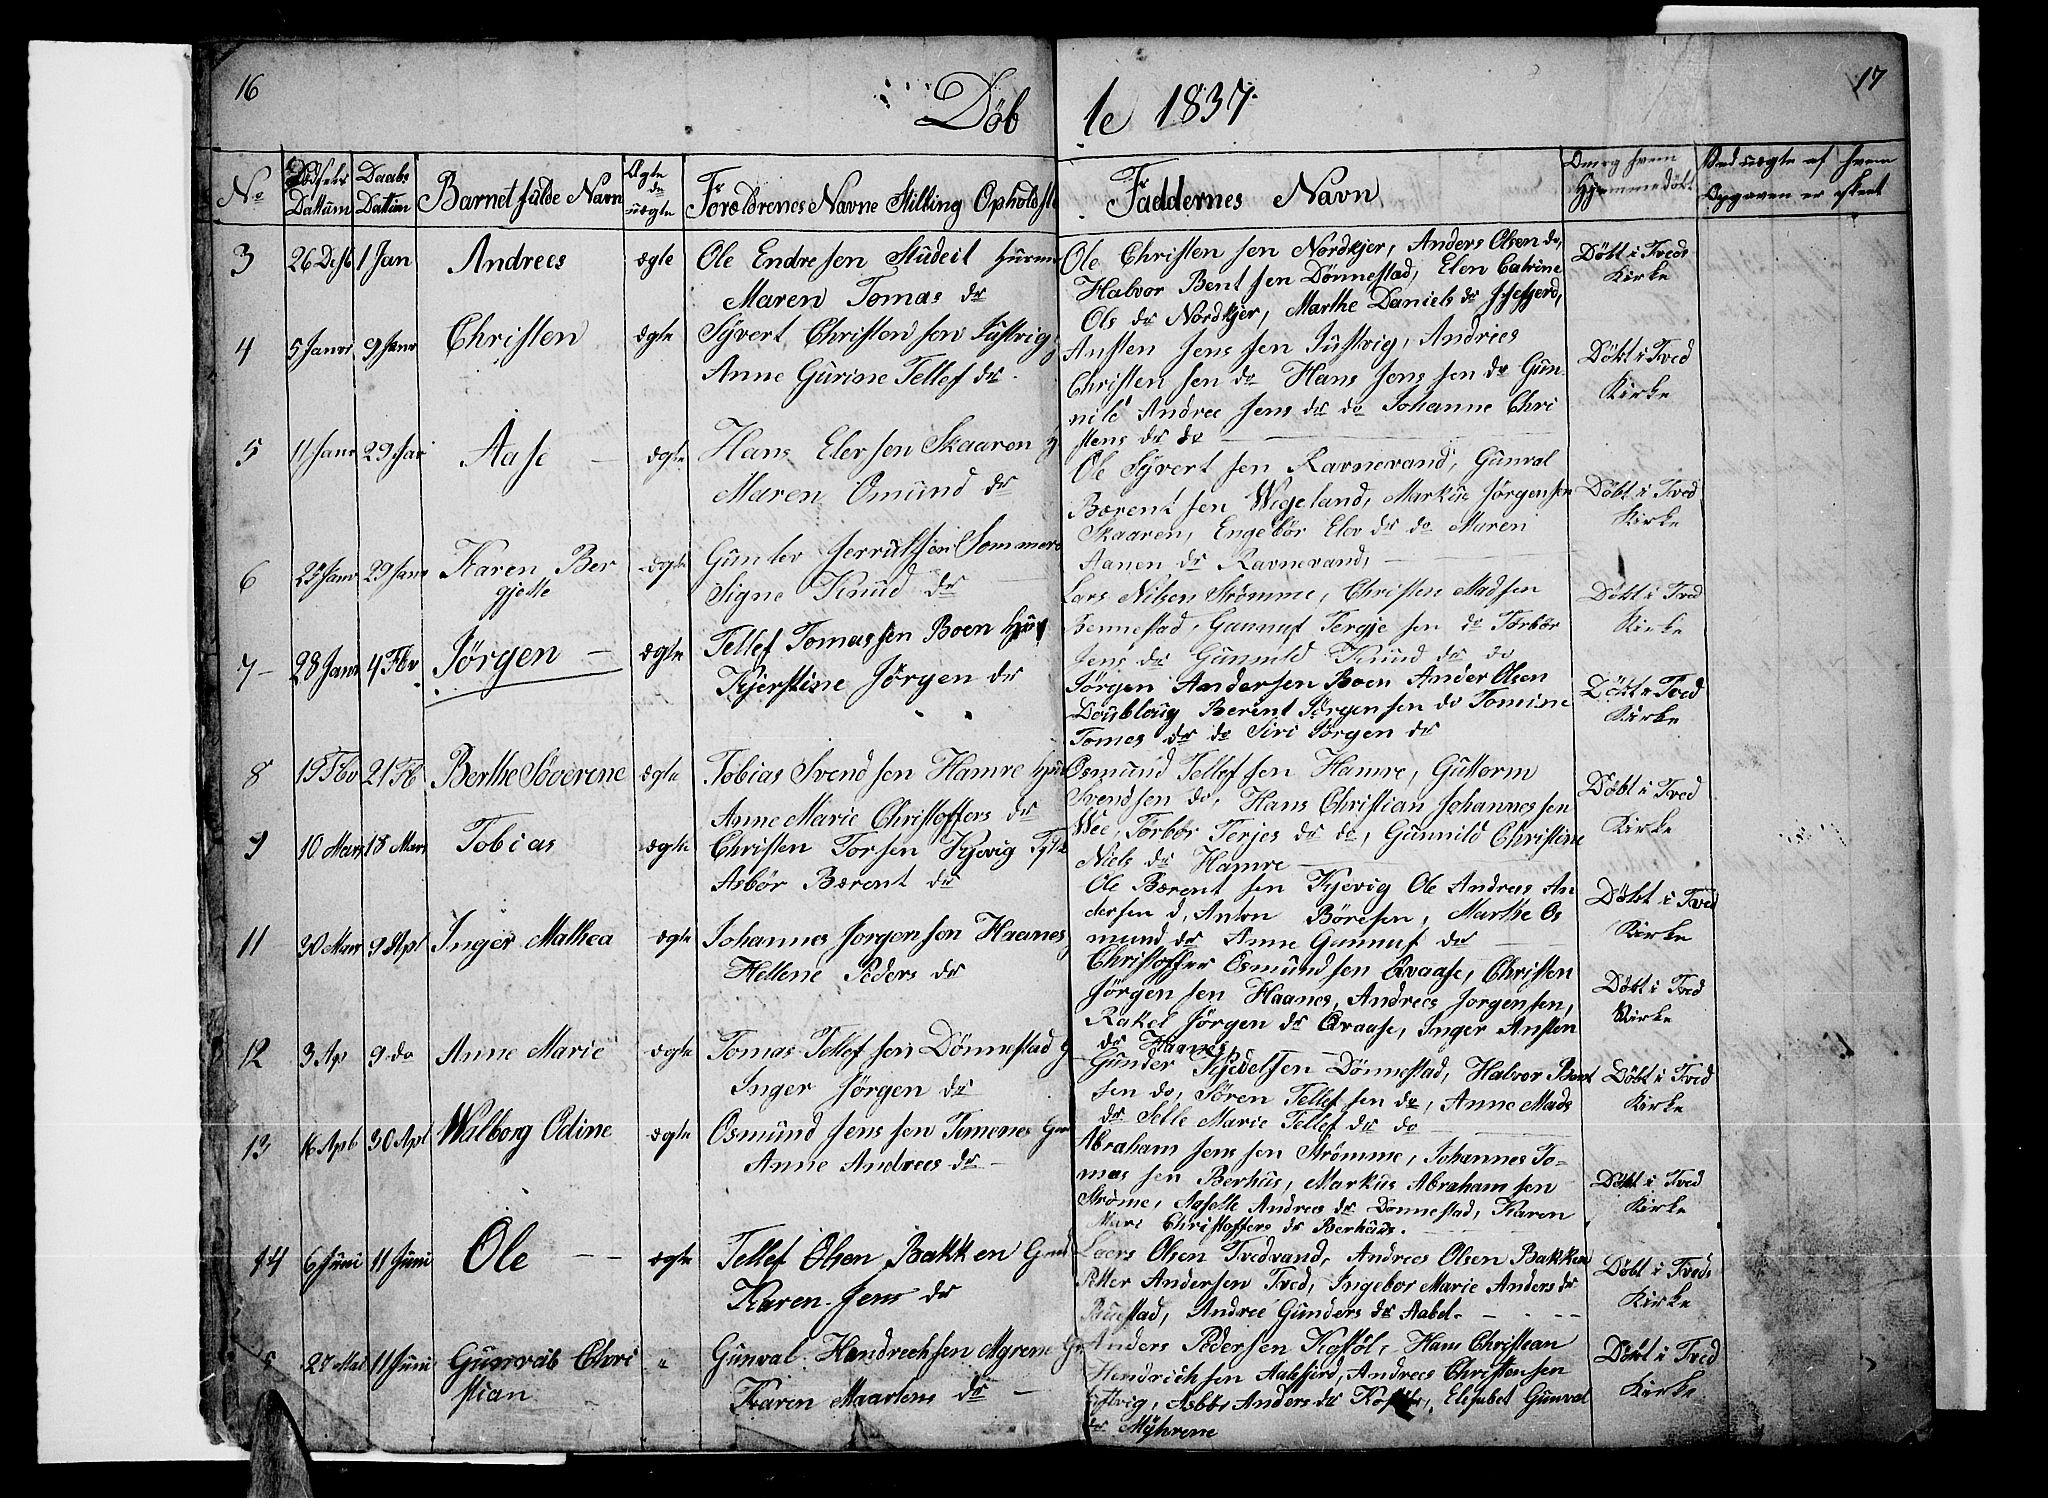 16
Døb
te 1837
17
No
Fødsels Dattum
Daabs Dattum
Barnet fulde Navn
Ægte
uægte
Forældrenes Navne Stilling Opholdste
Faddernes Navn
Om og hvem
Hjemmedøbt
Ved uægte af hvem
Opgaven er skeet
3 26 Desb 1 Jan Andrees ægte Ole Endresen Studeit Husm
Maren Tomas dr
Ole Christensen Nordkjer, Anders Olsen do,
Halvor Bentsen Dønnestad, Elen Catrine
Ols dr Nordkjer, Marthe Daniels dr
Døbt i Tveds
Kirke
4 5 Janr 9 Janr Christen ægte Syvert Christensen Justvig
Anne Gurine Tellef dr
Ansten Jenssen Justvig, Andries
Christensen do Hans Jenssen do Gun
nild Andree Jens dr do Johanne Chri
stens dr do
Døbt i Tved
Kirke
5 11 Janr 29 Jan Aase ægte Hans Elersen Skaaren
Maren Omund dr
Ole Syvertsen Ravnevand, Gunval
Bærentsen Wigeland, Markus Jørgensen
Skaaren, Engebør Elev dr do Maren
Aanen dr Ravnevand,
Døbt i Tved
Kirke
6 23 Janr 29 Janr Karen Ber
gjette
ægte Gunlev
Signe Knud dr
Lars Nilsen Strømme, Christen Madsen
Bennestad, Gunnuf Tergjesen do Torbør
Jens dr Gunnild Knud dr do
Døbt i Tved
Kirke
7 28 Janr 4 Fbv Jørgen ægte Tellef Tomassen Boen Hus
Kjerstine Jørgen dr
Jørgen Andersen Boen Ander Olsen
Doubloug Berent Jørgensen do Tomine
Tomes dr do Siri Jørgen dr
Døbt i Tved
Kirke
8 19 Fbv 21 Fb Berthe Severene ægte Tobias Svendsen Hamre Hus
Anne Marie Christoffers dr
Osmund Tellefsen Hamre, Guttorm
Svendsen do, Hans Christian Johannessen
Wee, Torbør Terjes dr do, Gunnild Christine
Niels dr Hamre
Døbt i Tved
Kirke
9 10 Mars 18 Mars Tobias ægte Christen Torsen Kjevig
Asbør Bærent dr
Ole Bærentsen Kjevig Ole Andreas An
dersen d, Anton Børesen, Marthe Os
mund dr Anne Gunnuf dr
Døbt i Tved
Kirke
11 30 Mar 9 Apl Inger Mathea ægte Johannes Jorgensen Haanes
Hellene Peders dr
Christoffer Osmundsen Qvaase, Christen
Jørgensen Haanes, Andrees Jorgensen,
Rakel Jørgen dr Qvaase, Inger Ansten
dr Haanes
Døbt i Tved
Kirke
12 3 Ap 9 do Anne Marie ægte Tomas Tellefsen Dønnestad
Inger Jørgen dr
Gunder Kjedelsen Dønnestad, Halvor Bent
sen do, Søren Tellefsen do, Anne Mads
dr Selle Marie Tellef dr do
Døbt i Tved
Kirke
13 16 Apb 30 Apl Walborg Odine ægte Osmund Jenssen Timenes
Anne Andrees dr
Abraham Jenssen Strømme, Johannes To-
massen Berhus, Markus Abrahamsen
Strøme, Aaselle Andrees dr Dønnestad, Karen
Mari Christoffers dr Berhuus.
Døbt i Tved
Kirke
14 6 Juni 11 Juni Ole ægte Tellef Olsen Bakken Grd
Karen Jens dr
Laers Olsen Tvedvand, Andrees Olsen Bakken
Petter Andersen Tved, Ingebor Marie Anders dr
Andree Gunders dr Aabel
Døbt i Tveds
Kirke
27 Mai 11 Juni Gunval Chri
stian
" Gunval Hendrechsen Mgrene
Karen Maartens dr
Anders Pedersen Kostøl, Hans Christian
Hendrichsen Aalefjerd, Andrees Christensen
Justvig, Asbør Anders dr Elisabet Gunval
dr Mÿhrene
Døbt i Tved
Kirke